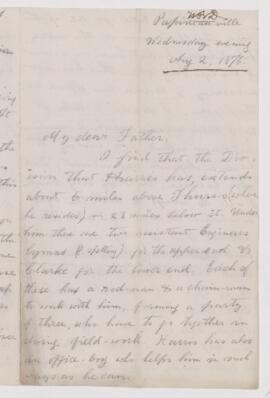 Wednesday evening
Aug 2, 1876.
My dear Father,
I find that the Div-
ision that Harris has, extends
about 6 miles above Three
he resides) & 8 miles below it. Under
him there are two assistant Engineers
(? spelling) for the upper end &
Clarke for the lower end. Each of
these has a rod-man & a chain-man
to work with him, forming a party
of three, who have to go together in
doing field-work. Harris has also
an office-boy who helps him in such
ways as he can.